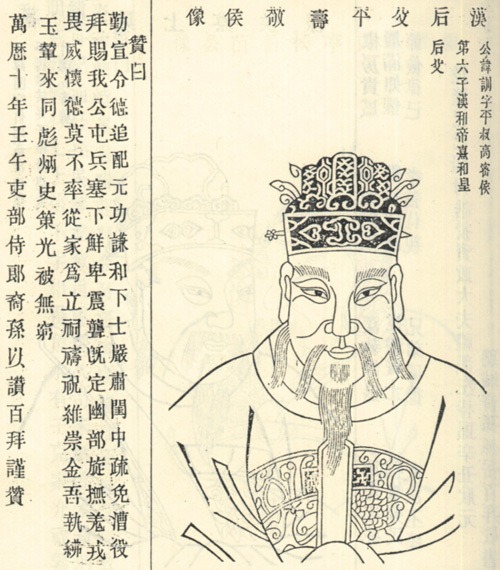 漢后父平壽敬侯像
公諱訓字平叔高密侯
第六子漢和帝熹和皇
后父
贊曰
勤宣令德追配元功謙和下士嚴肅閨中疏免漕役
拜賜我公屯兵塞下鮮卑震讋旣定幽部旋撫羗戎
畏威懷德莫不率從家爲立祠禱祝維崇金吾執紼
玉輦來同彪炳史策光被無窮
萬厯十年壬午吏部侍郎裔孫以讚百拜謹贊